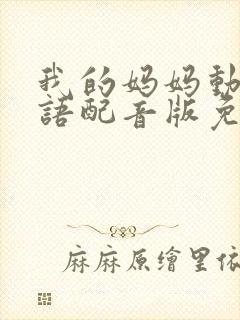 我的妈妈動
語配音版免
麻麻原繪里依